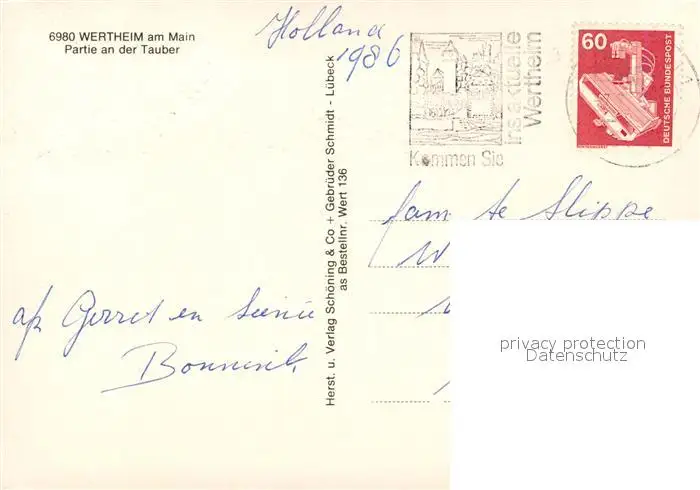 6980 WERTHEIM am Main
Partie an der Tauber
Holland
1986
Kommen Sie
ins aktuelle
Wertheim
60
DEUTSCHE BUNDESPOST
Herst. u. Verlag Schöning & Co + Gebrüder Schmidt - Lübeck
as Bestellnr. Wert 136
fam te Slippe
W
Gerret en
privacy protection
Datenschutz